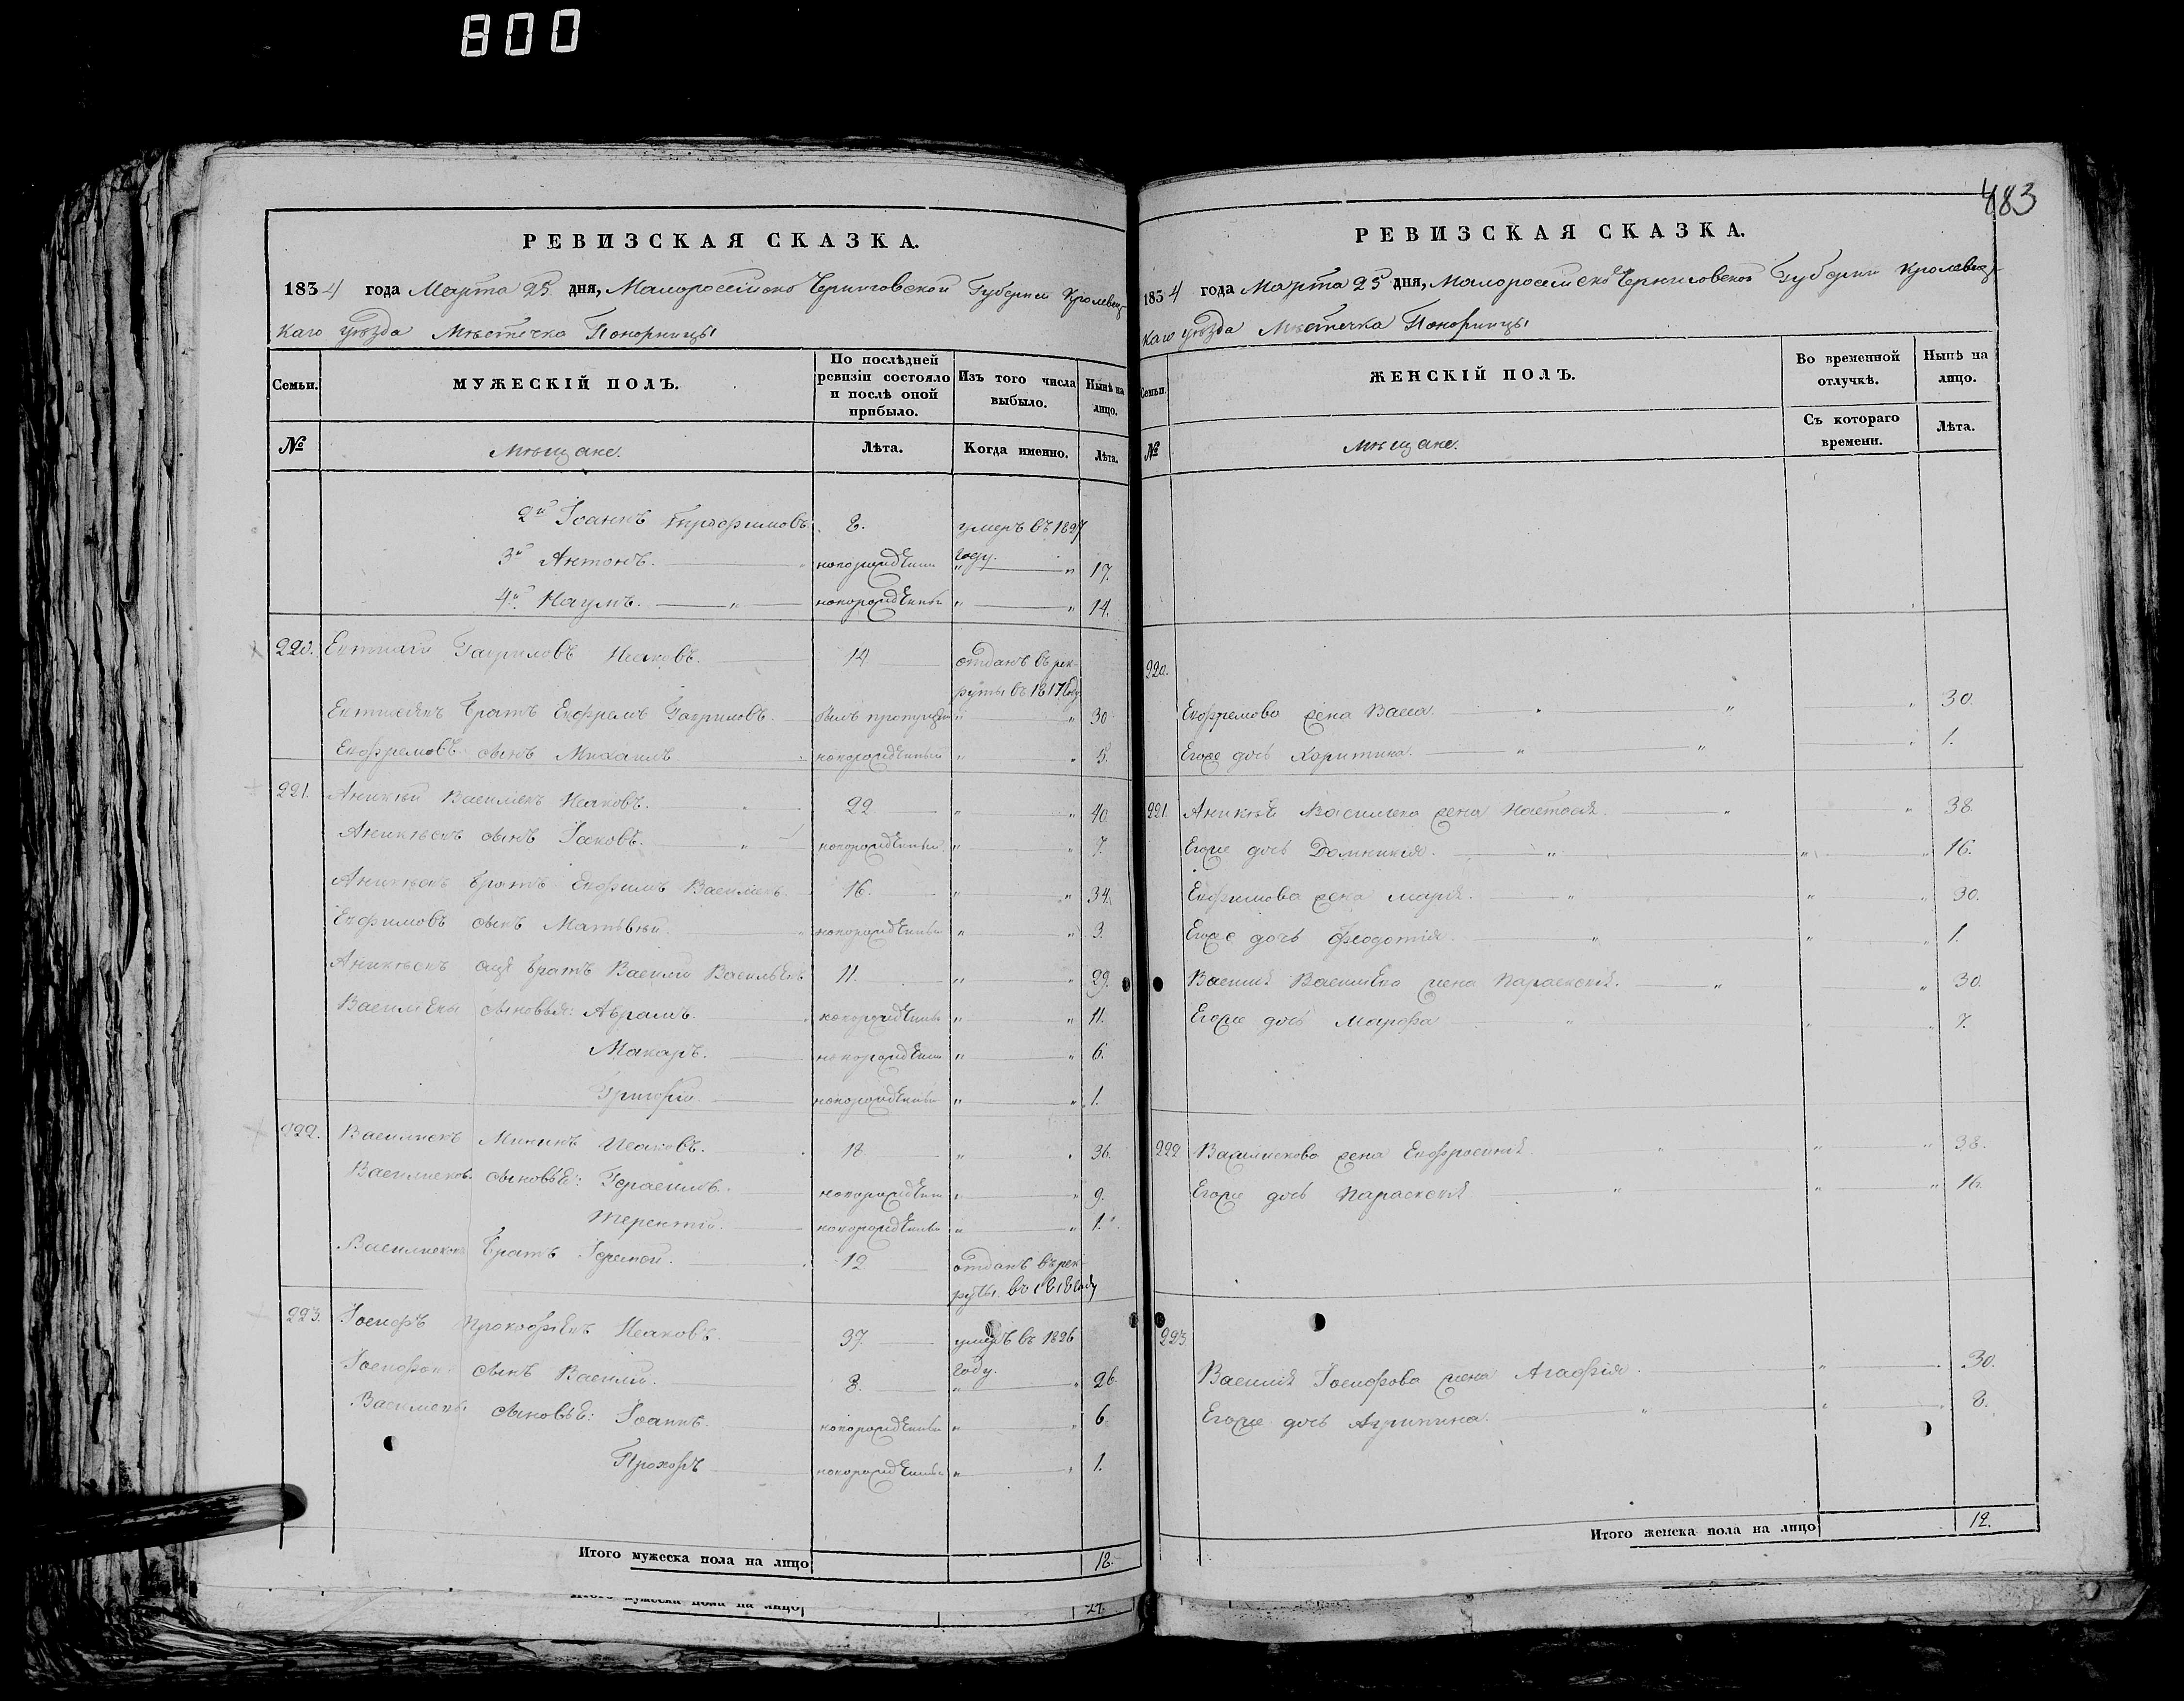 800
РЕВИЗСКАЯ СКАЗКА.
1834 года Марта 25 дня, Малоросссійско Черниговской Губерніи Кролевец-
каго уѣзда Мѣстечка Понорницы
Семьи.
МУЖЕСКІЙ ПОЛЪ.
По послѣдней ревизіи состояло и послѣ оной прибыло.
Изъ того числа выбыло.
Нынѣ на лицо.
№
Мѣщане.
Лѣта.
Когда именно.
Лѣта.
2й Іоаннъ 8. умеръ въ 1827 году.
3й Антонъ. новорожденный 17.
4й Наумъ. новорожденный 14.
220. Гавриловъ Исаковъ. 14 отданъ въ рек-
руты въ 1817 году
братъ Ефремъ Гавриловъ. былъ пропущенъ 30
Ефремовъ сынъ Михаилъ новорожденный 5.
221. Аникѣй Василіевъ Исаковъ. 22 40
Аникѣевъ сынъ Іаковъ. новорожденный 7.
Аникѣевъ братъ Ефимъ Василіевъ. 16. 34.
Ефимовъ сынъ Матвѣй новорожденный 3.
Аникѣевъ братъ Василій Васильевъ 11. 29.
Василіевы сыновья: Аврамъ. новорожденный 11.
Макаръ. новорожденный 6.
Григорій новорожденный 1.
222. Мининъ Исаковъ. 18 36.
сыновьѣ: Герасимъ. новорожденный 9.
Терентій. новорожденный 1.
братъ 12 отданъ въ рек-
руты въ 1818 году
223. Іосифъ Прокофіевъ Исаковъ. 37. умеръ въ 1826
году.
Іосифовъ сынъ Василій. 8. 26.
Василіевы сыновьѣ: Іоаннъ. новорожденный 6.
Прохоръ новорожденный 1.
Итого мужеска пола на лицо 18.
Итого мужеска пола на лицо
483
РЕВИЗСКАЯ СКАЗКА.
1834 года Марта 25 дня, Малоросссійско Черниговской Губерніи Кролевец-
каго уѣзда Мѣстечка Понорницы
Семьи.
ЖЕНСКІЙ ПОЛЪ.
Во временной отлучкѣ.
Нынѣ на лицо.
№
Мѣщане.
Съ котораго времени.
Лѣта.
220.
Ефремова жена Васса. 30.
Егоже дочь Харитина. 1.
221. Аникѣя Василиева жена Настасія 38.
Егоже дочь Домникія. 16.
Ефимова жена Марія. 30.
Егоже дочь Феодотія 1.
Василія Василіева жена Параскевія. 30.
Егоже дочь Марфа 7.
222 жена Ефросинія 38.
Егоже дочь Параскевія 16.
223
Василія Іосифова жена Агафія 30.
Егоже дочь Агрипина. 8.
Итого женска пола на лицо 12.